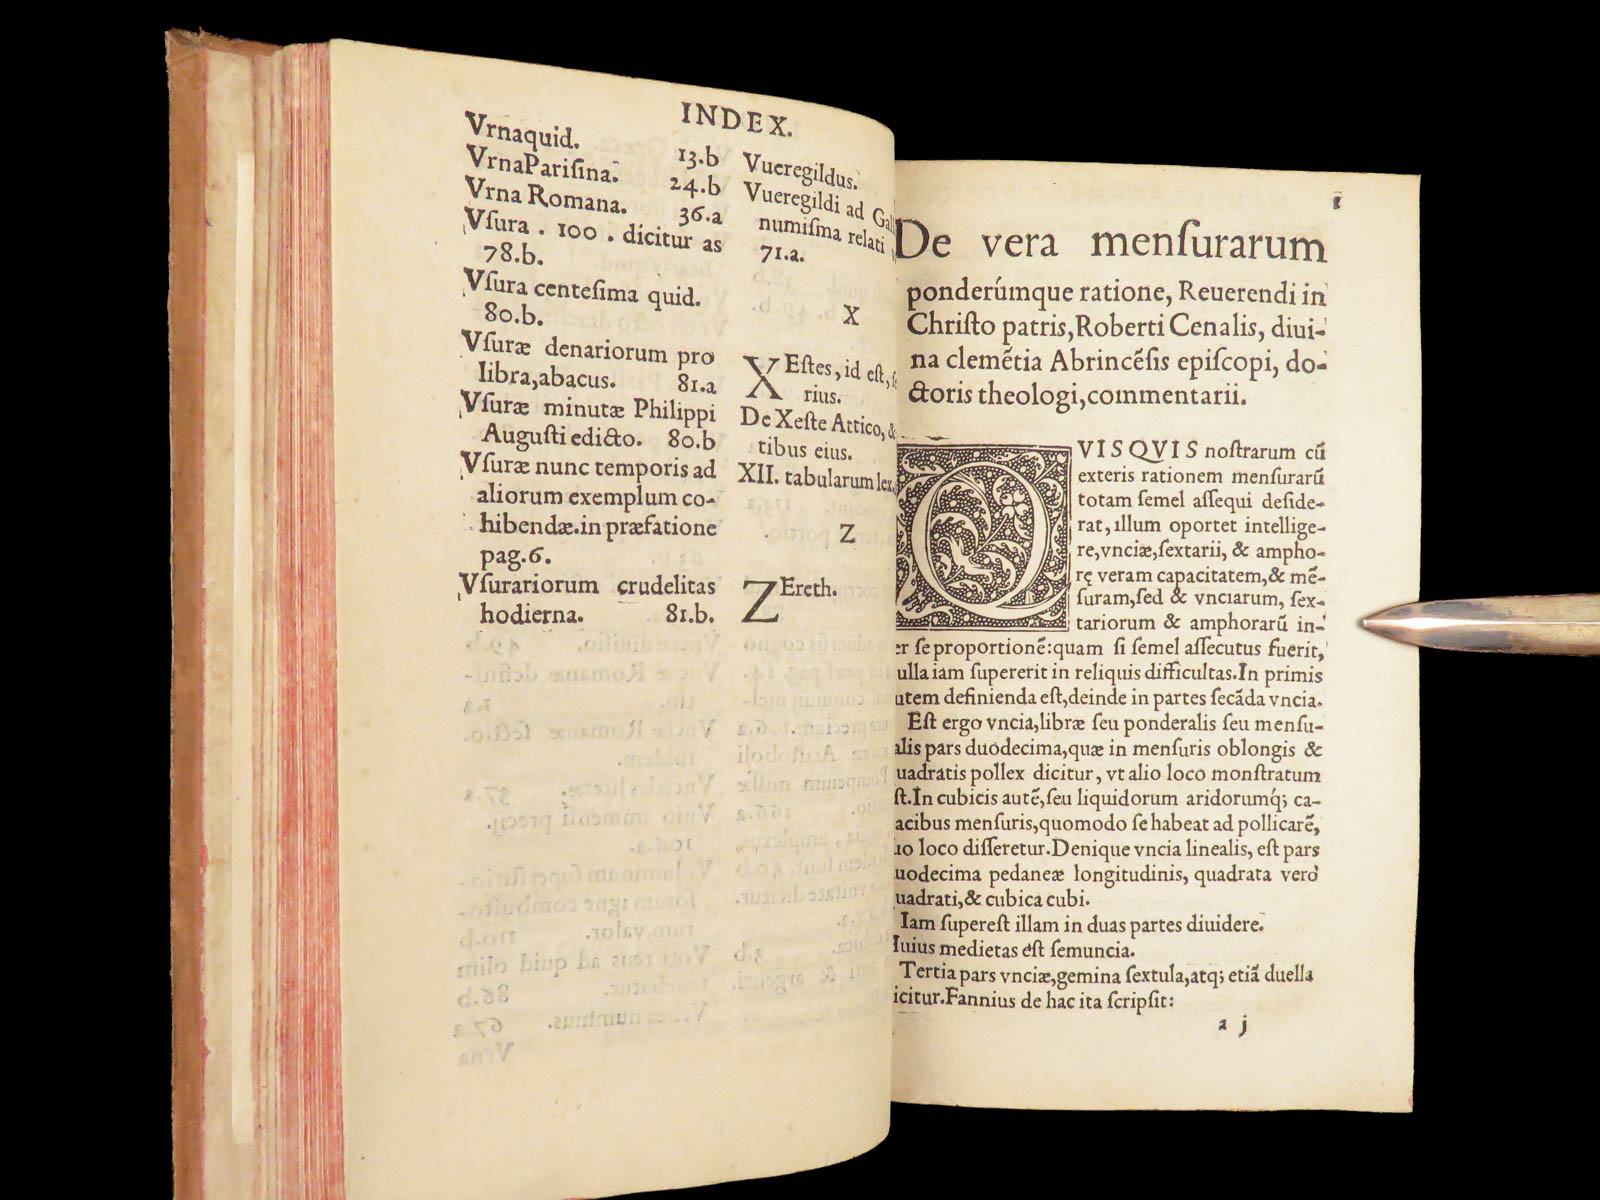 INDEX.
Vrnaquid. 13.b
VrnaPariſina. 24.b
Vrna Romana. 36.a
Vſura . 100 . dicitur as
78.b.
Vſura centeſima quid.
80.b.
Vſuræ denariorum pro
libra,abacus. 81.a
Vſuræ minutæ Philippi
Auguſti edicto. 80.b
Vſuræ nunc temporis ad
aliorum exemplum co-
hibendæ.in præfatione
pag.6.
Vſurariorum crudelitas
hodierna. 81.b.
Vueregildus.
Vueregildi ad
numiſma relati
71.a.
X
XEſtes, id eſt,
rius.
De Xeſte Attico, &
tibus eius.
XII. tabularum lex.
Z
ZEreth.
1
De vera menſurarum
ponderúmque ratione, Reuerendi in
Chriſto patris,Roberti Cenalis, diui-
na clemẽtia Abrincẽſis epiſcopi, do-
ctoris theologi,commentarii.
QVISQVIS noſtrarum cũ
exteris rationem menſurarũ
totam ſemel aſſequi deſide-
rat, illum oportet intellige-
re,vnciæ,ſextarii, & ampho-
rę veram capacitatem,& mẽ-
ſuram,ſed & vnciarum, ſex-
tariorum & amphorarũ in-
er ſe proportionẽ:quam ſi ſemel aſſecutus fuerit,
ulla iam ſupererit in reliquis difficultas.In primis
utem definienda eſt,deinde in partes ſecãda vncia.
Eſt ergo vncia,libræ ſeu ponderalis ſeu menſu-
alis pars duodecima,quæ in menſuris oblongis &
uadratis pollex dicitur, vt alio loco monſtratum
ſt.In cubicis autẽ,ſeu liquidorum aridorumq; ca-
acibus menſuris,quomodo ſe habeat ad pollicarẽ,
io loco diſſeretur.Denique vncia linealis, eſt pars
uodecima pedaneæ longitudinis, quadrata verò
uadrati,& cubica cubi.
Iam ſupereſt illam in duas partes diuidere.
Huius medietas eſt ſemuncia.
Tertia pars vnciæ,gemina ſextula,atq; etiã duella
icitur.Fannius de hac ita ſcripſit:
a j